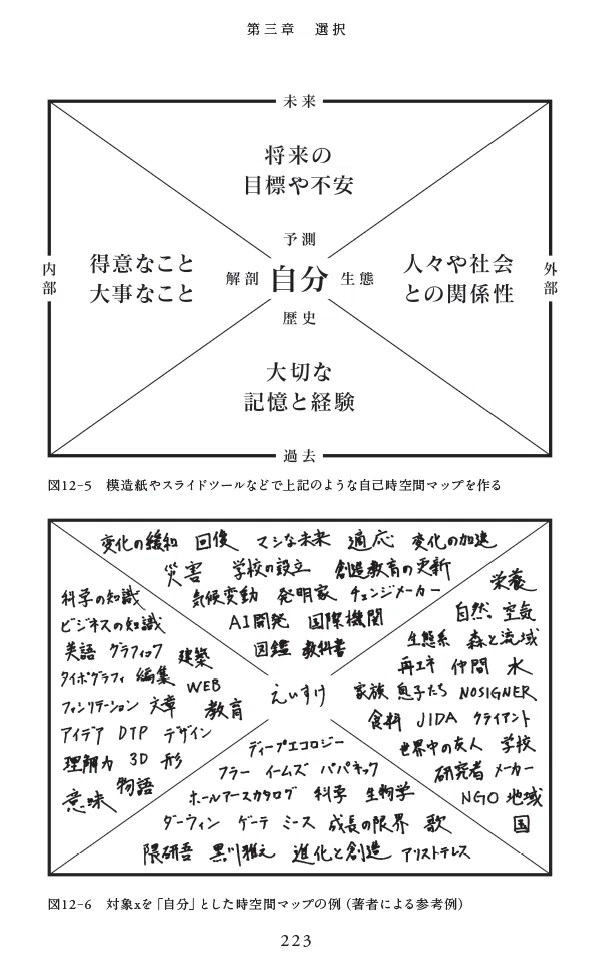 第三章 選択
未来
将来の
目標や不安
予測
内部
得意なこと
大事なこと
解剖 自分 生態
人々や社会
との関係性
外部
歴史
大切な
記憶と経験
過去
図12-5 模造紙やスライドツールなどで上記のような自己時空間マップを作る
変化の緩和 回復 マシな未来 適応 変化の加速
災害 学校の設立 創造教育の更新
気候変動 発明家 チェンジメーカー
AI開発 国際機関
図鑑 教科書
科学の知識
ビジネスの知識
美語 グラフィック 建築
タイポグラフィ 編集 WEB
ファシリテーション 文章 教育
アイデア DTP デザイン
理解力 3D 形
意味 物語
えいすけ
栄養
自然 空気
生態系 森と流域
再エネ 仲間 水
家族 息子たち NOSIGNER
食料 JIDA クライアント
世界中の友人 学校
研究者 メーカー
NGO 地域
国
ディープエコロジー
フラー イームズ パパネック
ホールアースカタログ 科学 生物学
ダーウィン ゲーテ ミース 成長の限界 歌
隈研吾 黒川雅之 進化と創造 アリストテレス
図12-6 対象xを「自分」とした時空間マップの例（著者による参考例）
223